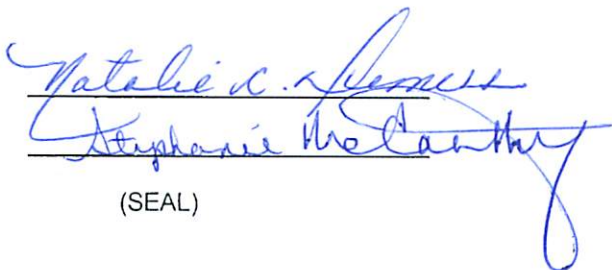 Natalie K.
Stephanie McCarthy
(SEAL)